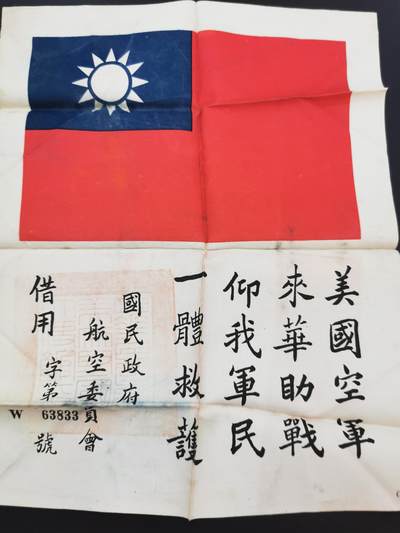 美國空軍
來華助戰
仰我軍民
一體救護
國民政府
航空委員會
借用 字第 號
W 63833